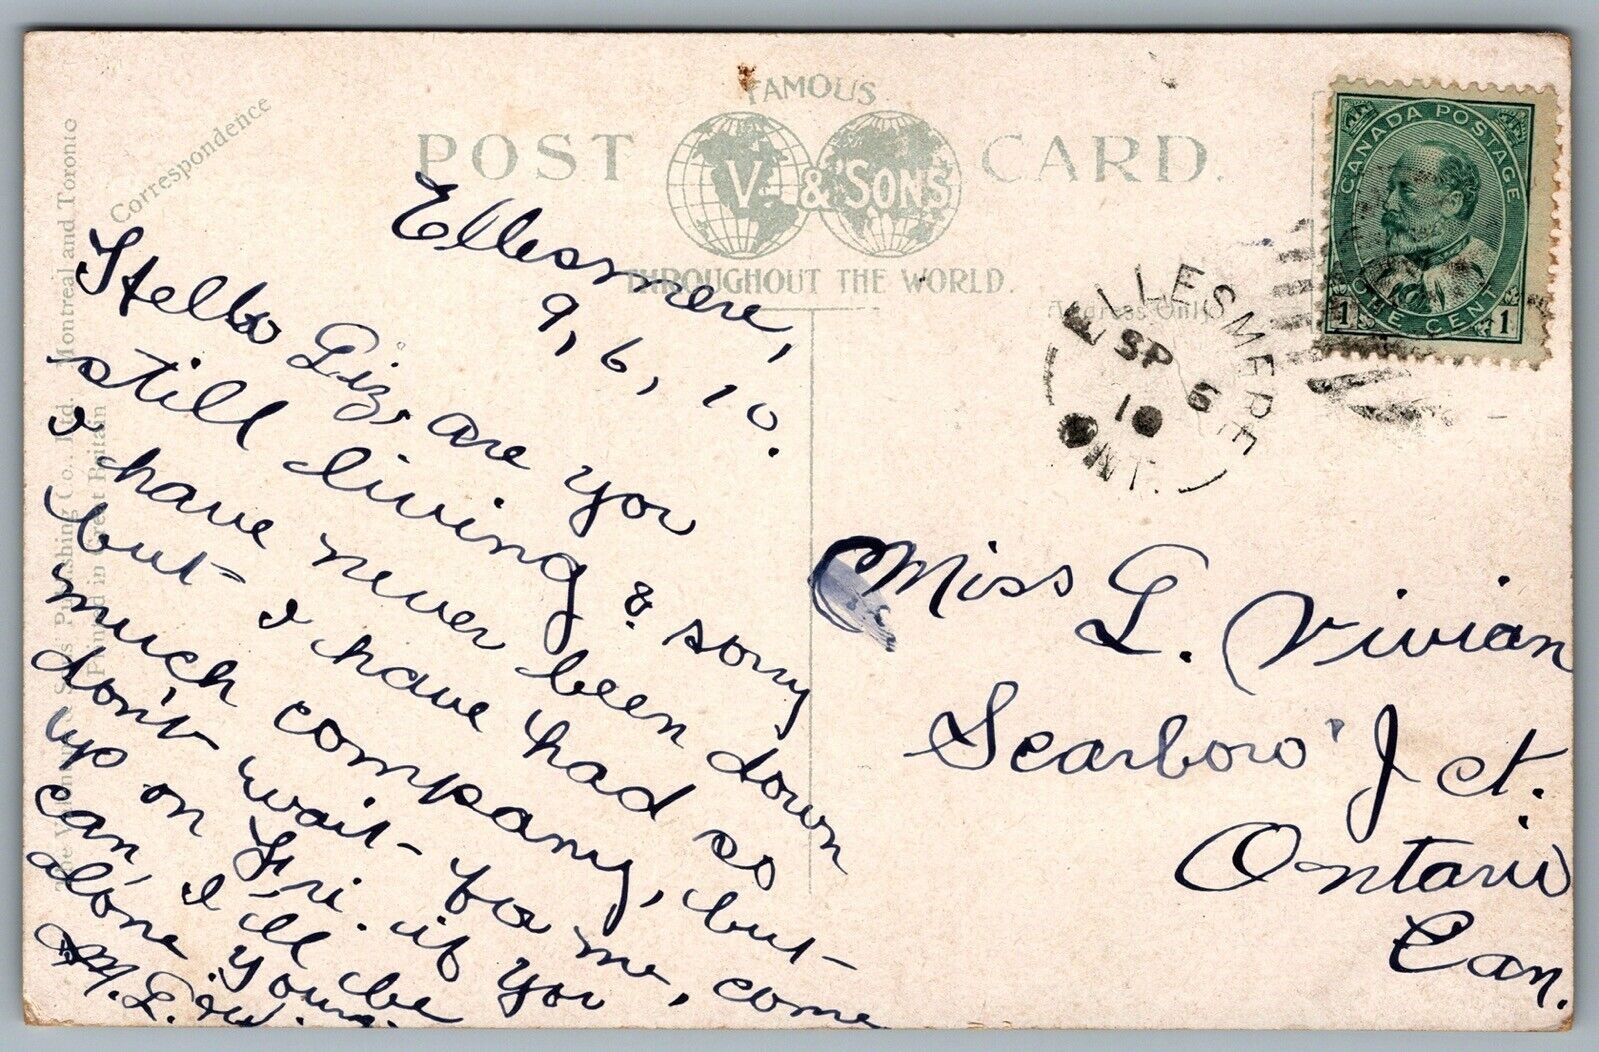 FAMOUS
POST CARD.
V. & SONS
THROUGHOUT THE WORLD.
Correspondence
Address Only
Montreal and Toronto
Publishing Co., Ltd.
Printed in Great Britain
CANADA POSTAGE
1 ONE CENT 1
ELLESMERE
SP 6
10
ONT.
Ellesmere,
9, 6, 10.
Hello Liz, are you
still living & sorry
I have never been down
but I have had so
much company, but
don't wait for me, come
up on Fri. if you
can, I'll be
alone. Yours.
M. L. W.
Miss L. Vivian
Scarboro' Jct.
Ontario
Can.